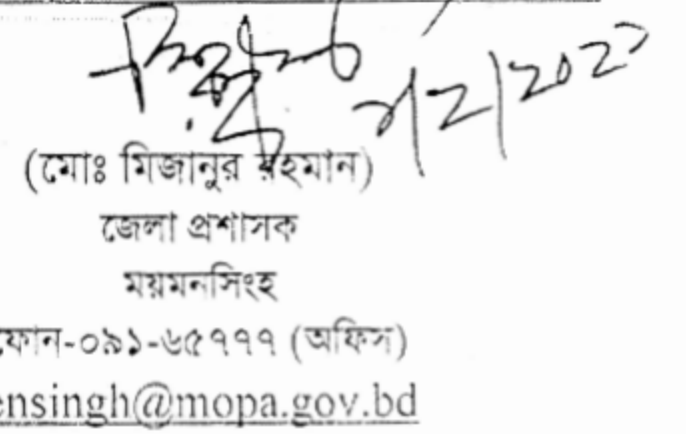 (মোঃ মিজানুর রহমান)
জেলা প্রশাসক
ময়মনসিংহ
ফোন-০৯১-৬৫৭৭৭ (অফিস)
ensingh@mopa.gov.bd